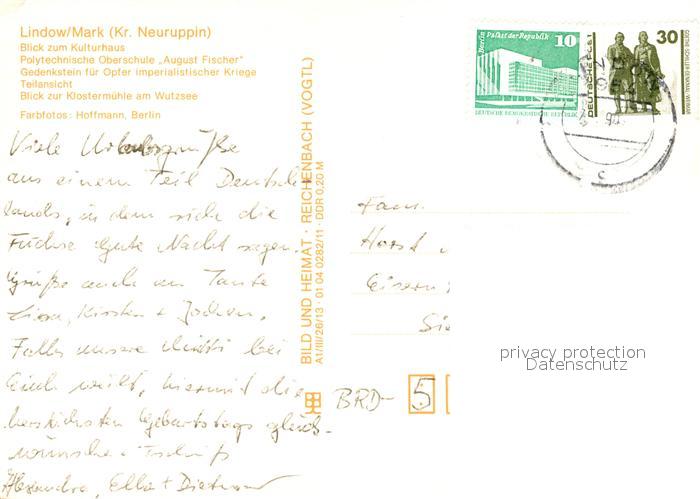 Lindow/Mark (Kr. Neuruppin)
Blick zum Kulturhaus
Polytechnische Oberschule „August Fischer"
Gedenkstein für Opfer imperialistischer Kriege
Teilansicht
Blick zur Klostermühle am Wutzsee
Farbfotos: Hoffmann, Berlin
Viele Urlaubsgrüße
aus einem Teil Deutsch-
lands, in dem sich die
Füchse Gute Nacht sagen.
Grüße auch an Tante
Kirsten + Jochen.
Falls unsere bei
Euch weilt, hiermit die
herzlichsten Geburtstags glück-
wünsche + Tschüß
Alexandra, Ella + Dietmar
BILD UND HEIMAT · REICHENBACH (VOGTL)
A1/III/26/13 · 01 04 0282/11 · DDR 0,20 M
Berlin Palast der Republik 10
DEUTSCHE DEMOKRATISCHE REPUBLIK
DEUTSCHE POST
30
GOETHE-SCHILLER-DENKMAL WEIMAR
c
Fam.
Horst
Eisern
Sie
BRD- 5
privacy protection
Datenschutz